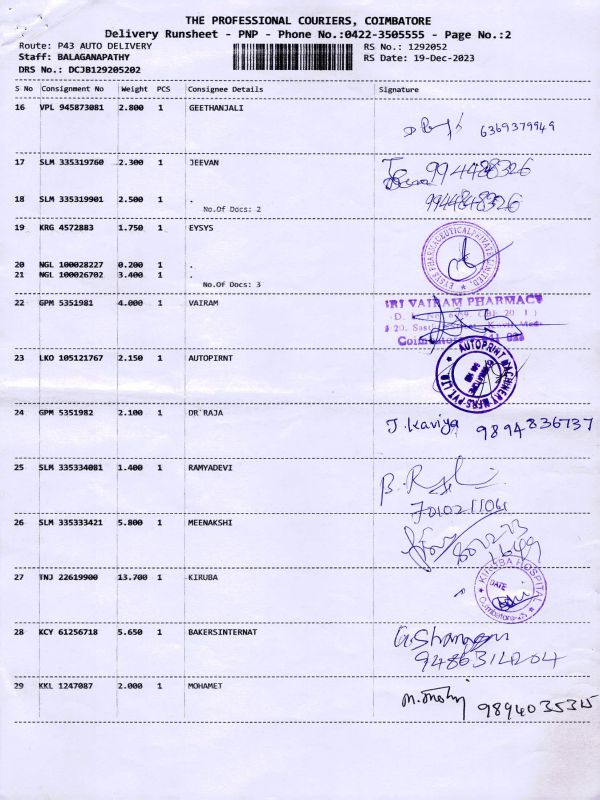 THE PROFESSIONAL COURIERS, COIMBATORE
Delivery Runsheet - PNP - Phone No.:0422-3505555 - Page No.:2
Route: P43 AUTO DELIVERY RS No.: 1292052
Staff: BALAGANAPATHY RS Date: 19-Dec-2023
DRS No.: DCJB129205202
S No Consignment No Weight PCS Consignee Details Signature
16 VPL 945873081 2.800 1 GEETHANJALI
6369379949
17 SLM 335319760 2.300 1 JEEVAN
9944848326
18 SLM 335319901 2.500 1 .
No.Of Docs: 2
9944848326
19 KRG 4572883 1.750 1 EYSYS
EYSYS PHARMACEUTICAL PRIVATE LIMITED
20 NGL 100028227 0.200 1 .
21 NGL 100026702 3.400 1 .
No.Of Docs: 3
22 GPM 5351981 4.000 1 VAIRAM
SRI VAIRAM PHARMACY
23 LKO 105121767 2.150 1 AUTOPIRNT
AUTOPRINT MACHINERY MFRS PVT LTD
24 GPM 5351982 2.100 1 DR`RAJA
J. Kaviya 9894836737
25 SLM 335334081 1.400 1 RAMYADEVI
26 SLM 335333421 5.800 1 MEENAKSHI
27 TNJ 22619900 13.700 1 KIRUBA
KIRUBA HOSPITAL
DATE
Coimbatore-25
28 KCY 61256718 5.650 1 BAKERSINTERNAT
9486314204
29 KKL 1247087 2.000 1 MOHAMET
9894035315